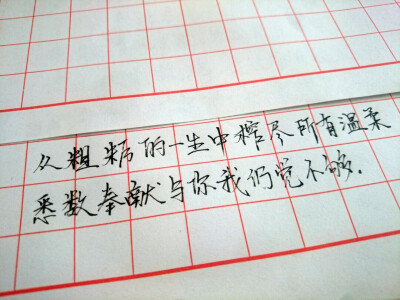 从粗粝的一生中榨尽所有温柔
悉数奉献与你我仍觉不够.